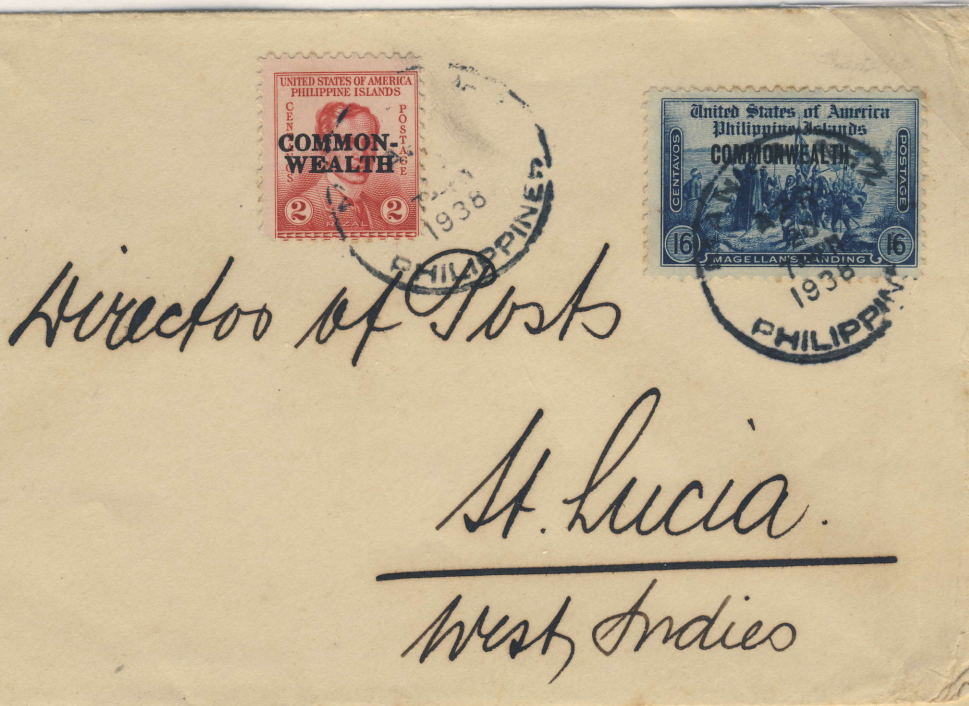 UNITED STATES OF AMERICA
PHILIPPINE ISLANDS
CENTAVOS
POSTAGE
COMMON-
WEALTH
2 2
RIZAL
1938
PHILIPPINE
United States of America
Philippine Islands
COMMONWEALTH
CENTAVOS
POSTAGE
16 16
MAGELLAN'S LANDING
1938
PHILIPPIN
Director of Posts
St. Lucia.
West Indies